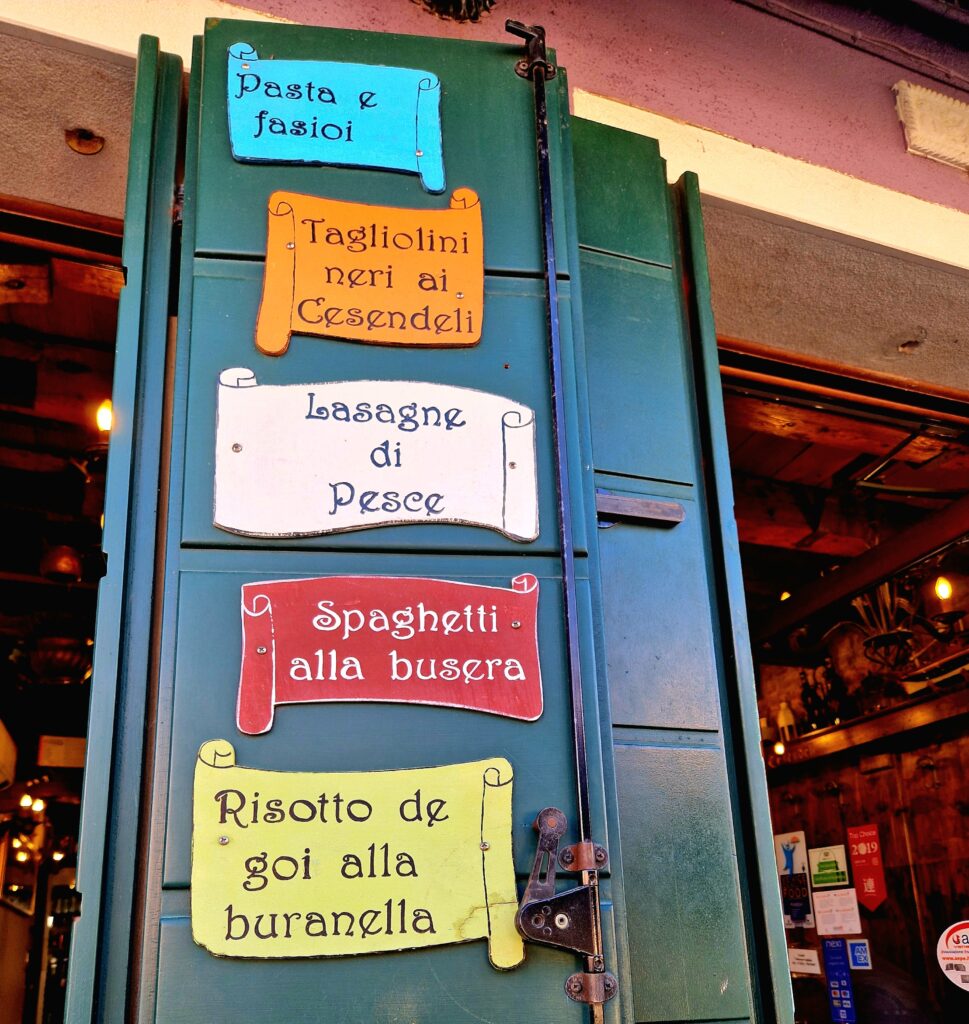 Pasta e
fasioi
Tagliolini
neri ai
Cesendeli
Lasagne
di
Pesce
Spaghetti
alla busera
Risotto de
goi alla
buranella
Top Choice
2019
nexi